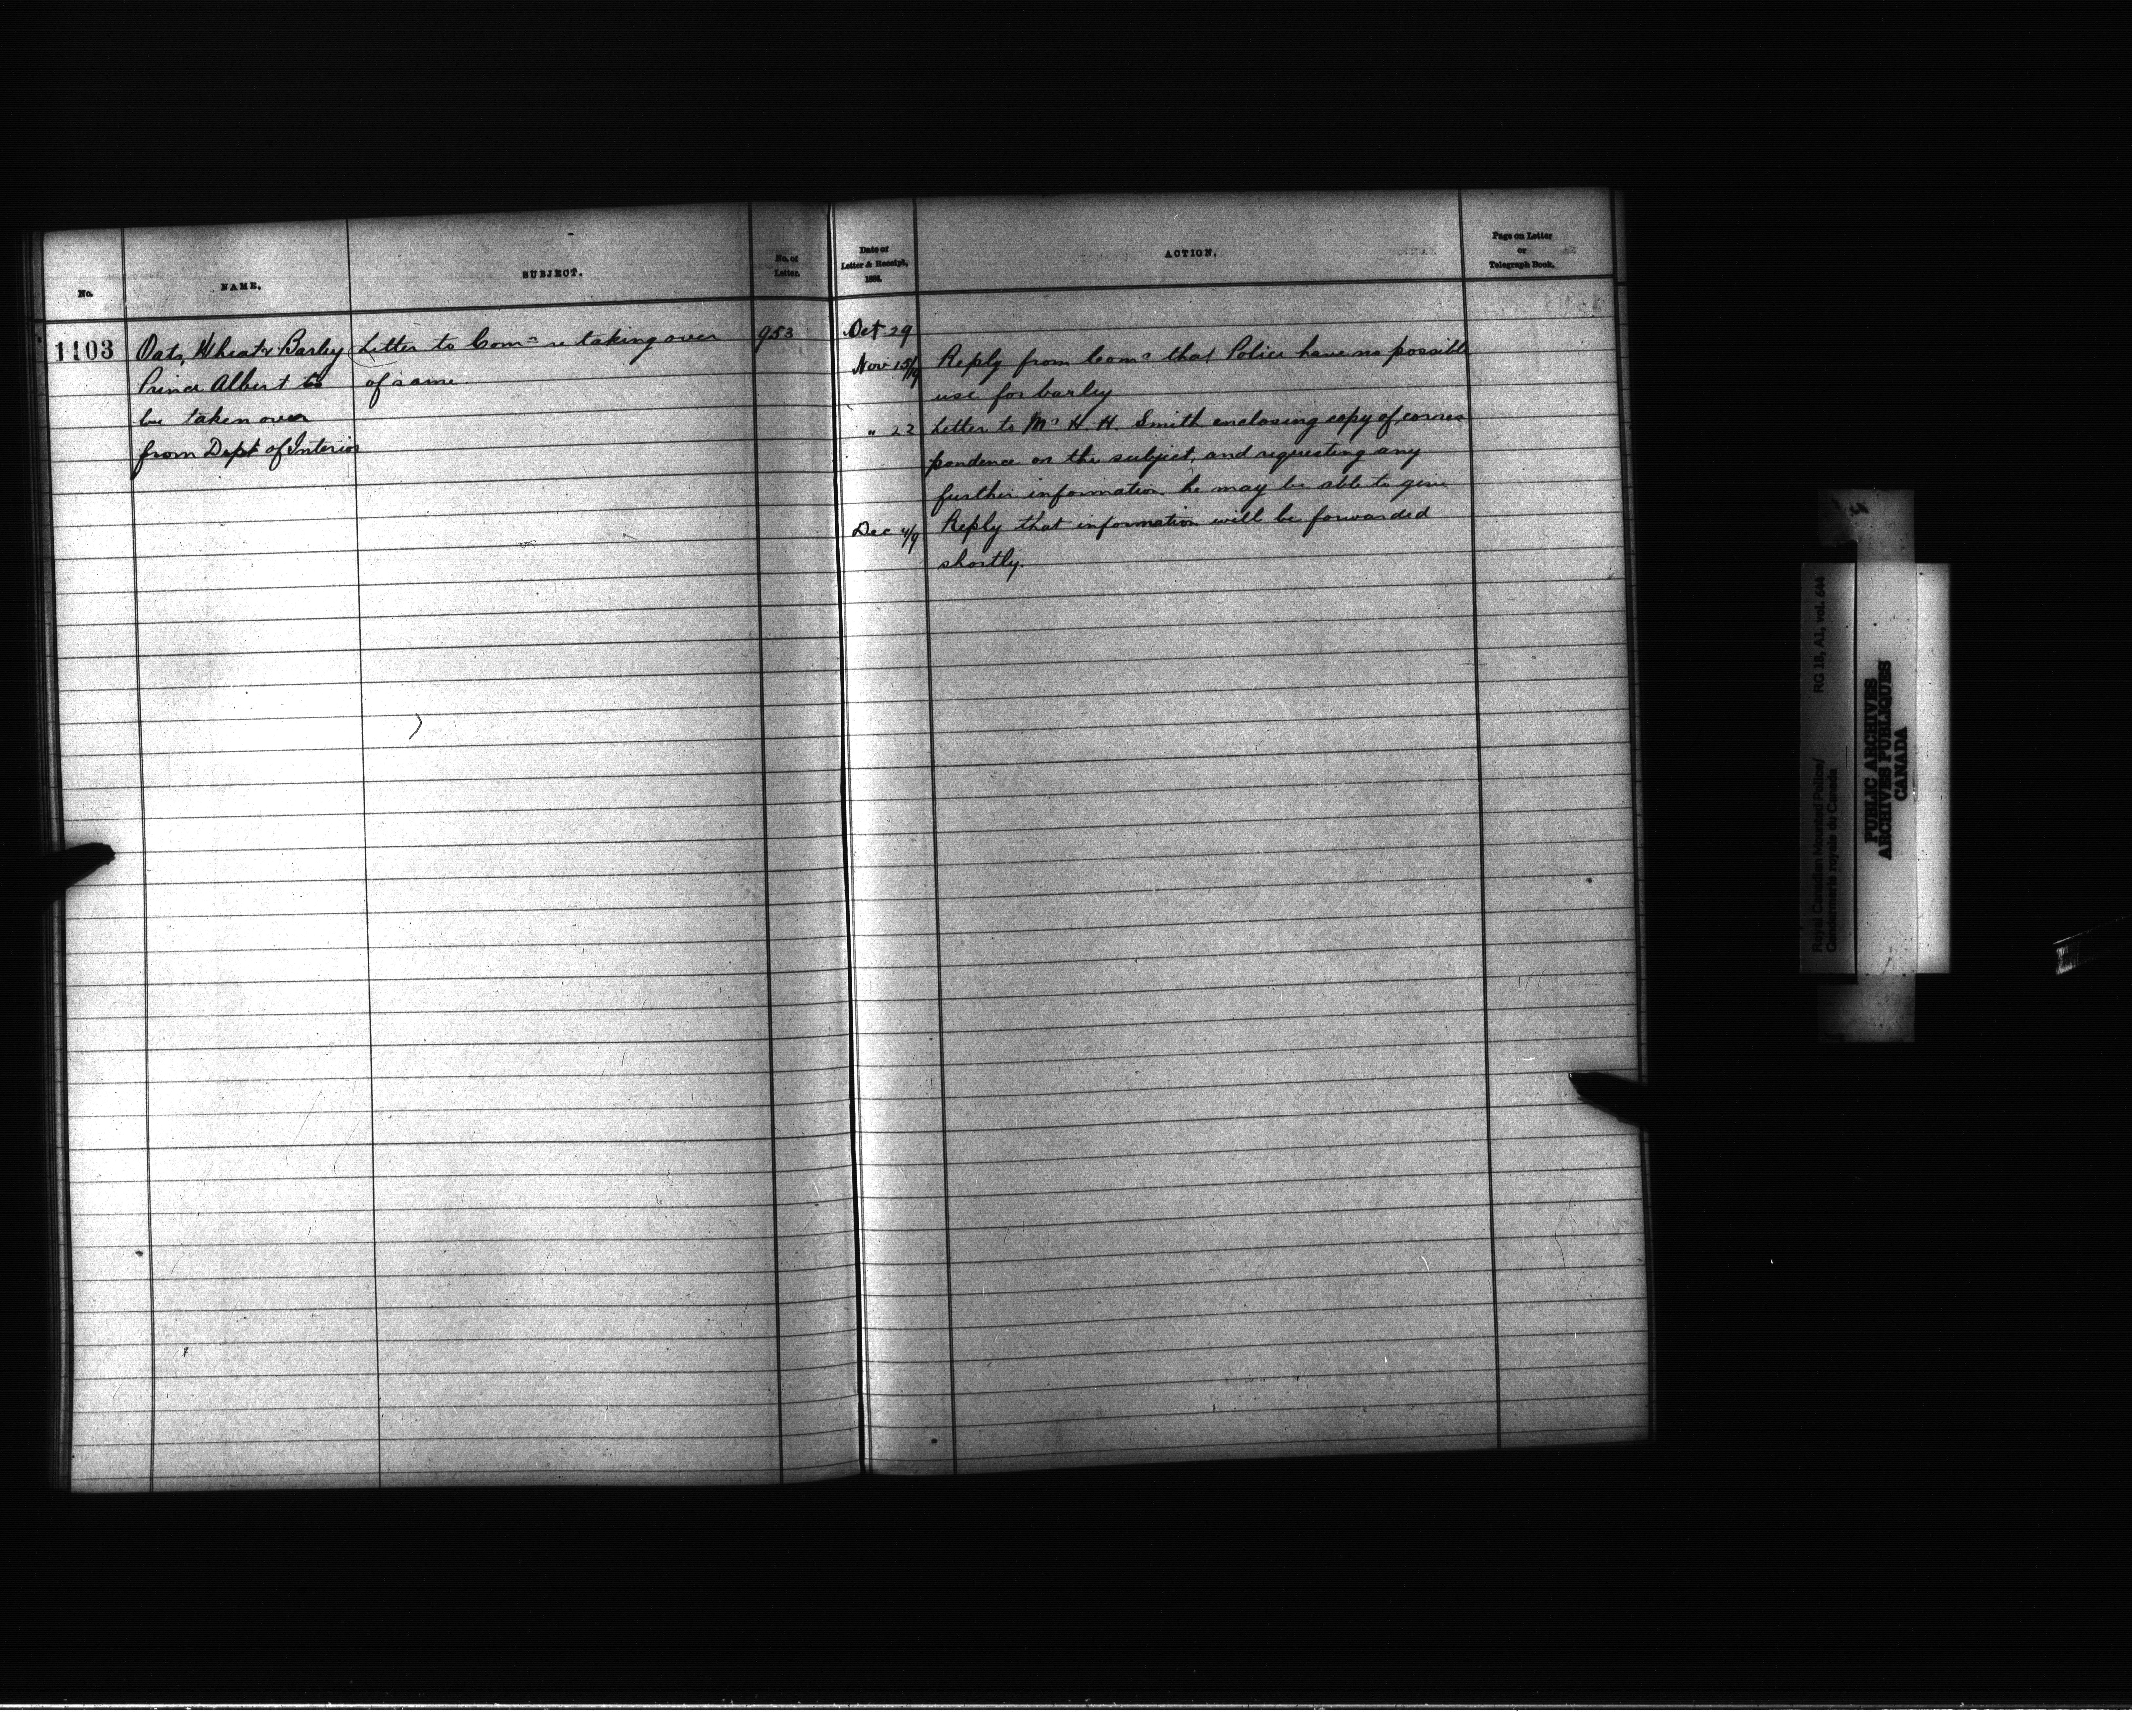 No.
NAME.
SUBJECT.
No. of
Letter.
Date of
Letter & Receipt,
188 .
ACTION.
Page on Letter
or
Telegraph Book.
1103
Oats, Wheat & Barley
Prince Albert to
be taken over
from Dept of Interior
Letter to Comr re taking over
of same.
953
Oct 29
Nov 13/19
Reply from Comr that Police have no possible
use for barley
" 22
Letter to Mr H. H. Smith enclosing copy of corres
pondence on the subject, and requesting any
further information he may be able to give
Dec 4/9
Reply that information will be forwarded
shortly.
Royal Canadian Mounted Police/
Gendarmerie royale du Canada
RG 18, A1, vol. 644
PUBLIC ARCHIVES
ARCHIVES PUBLIQUES
CANADA